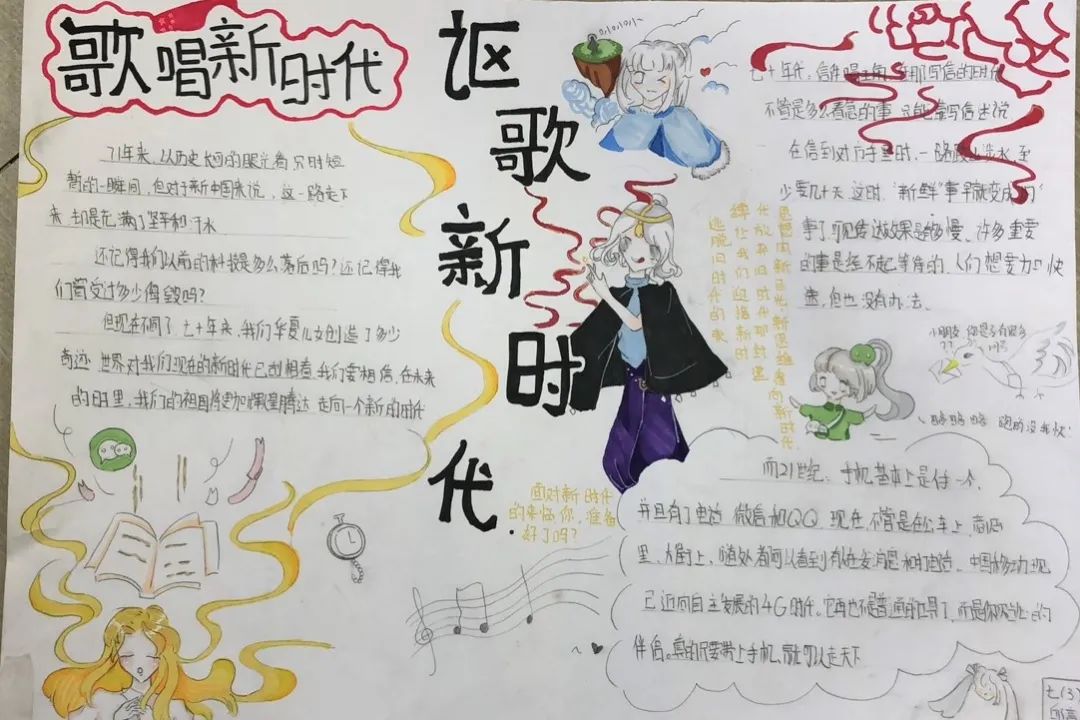 歌唱新时代
讴歌新时代
71年来,从历史长河的眼光看只时短
暂的一瞬间,但对于新中国来说,这一路走下
来,却是充满了艰辛和汗水
还记得我们以前的科技是多么落后吗?还记得我
们曾受过多少得毁吗?
但现在不同了 七十年来,我们华夏儿女创造了多少
奇迹 世界对我们现在的新时代已刮相看.我们要相信,在未来
的日里,我们的祖国将更加辉煌腾达 走向一个新的时代
七十年代,信件
不管是多么着急的事 只能靠写信述说
在信到对方手里时,一路跋山涉水,至
少要几十天 这时,“新鲜”事早就变成
事了 可见传达效果是能够慢、许多重要
的事是经不起等待的,人们想要加快
速,但也没有办法。
思想闪新日光,新思维看向新时代,
代放弃旧时代那封建
缚 让我们迎接新时
逃脱旧时代的束
小朋友 你是
略略略 跑的没我快!
面对新时代
的来临,你,准备
好了吗?
而21世纪,手机基本上是任一个,
并且有了电话 微信和QQ 现在,不管是在公车上,商店
里,大街上,随处都可以看到有人在发消息和打电话。中国移动现
已迈向自主发展的4G时代,它再也不是普通的工具了,而是你不
伴侣。真的只要带上手机,就可以走天下
七(3)